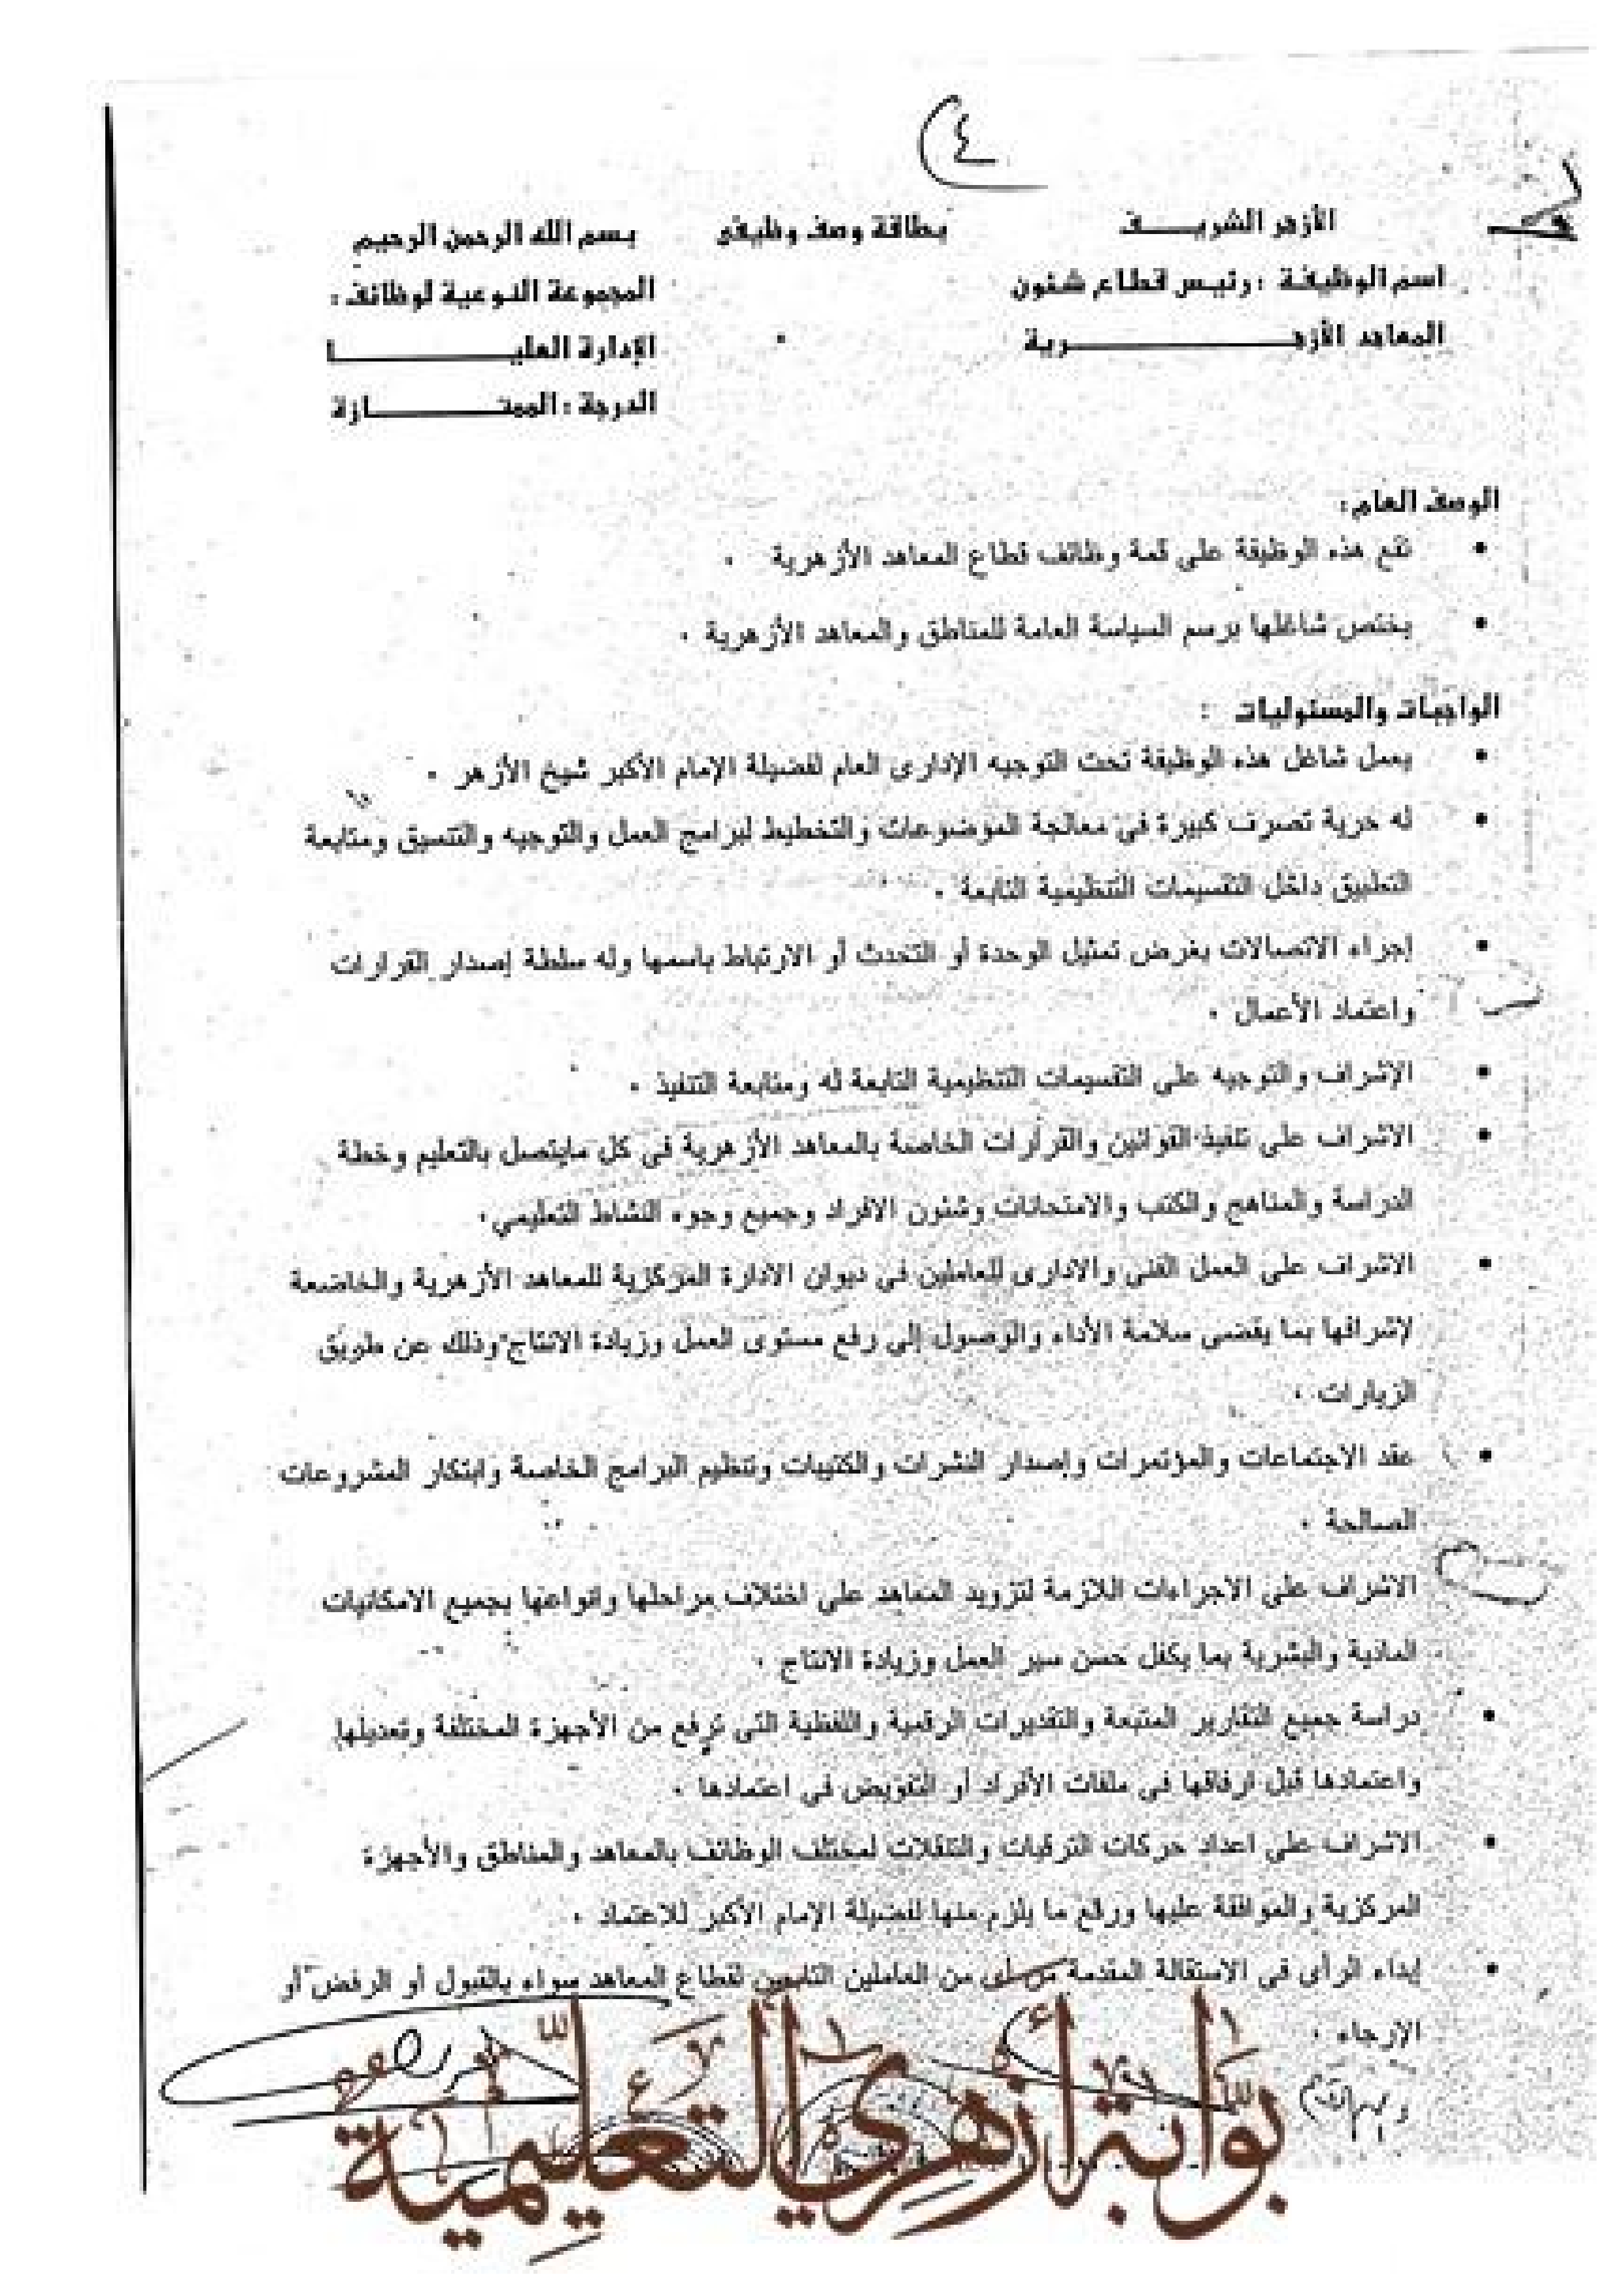 ٤
الأزهر الشريف بطاقة وصف وظيفى بسم الله الرحمن الرحيم
اسم الوظيفة : رئيس قطاع شئون المجموعة النوعية لوظائف :
المعاهد الأزهرية الإدارة العليا
الدرجة : الممتازة
الوصف العام :
• تقع هذه الوظيفة على قمة وظائف قطاع المعاهد الأزهرية .
• يختص شاغلها برسم السياسة العامة للمناطق والمعاهد الأزهرية .
الواجبات والمسئوليات :
• يعمل شاغل هذه الوظيفة تحت التوجيه الإدارى العام لفضيلة الإمام الأكبر شيخ الأزهر .
• له حرية تصرف كبيرة في معالجة الموضوعات والتخطيط لبرامج العمل والتوجيه والتنسيق ومتابعة
التطبيق داخل التقسيمات التنظيمية التابعة .
• إجراء الاتصالات بغرض تمثيل الوحدة أو التحدث أو الارتباط باسمها وله سلطة إصدار القرارات
واعتماد الأعمال .
• الإشراف والتوجيه على التقسيمات التنظيمية التابعة له ومتابعة التنفيذ .
• الاشراف على تنفيذ القوانين والقرارات الخاصة بالمعاهد الأزهرية في كل مايتصل بالتعليم وخطة
الدراسة والمناهج والكتب والامتحانات وشئون الافراد وجميع وجوه النشاط التعليمي .
• الاشراف على العمل الفنى والادارى للعاملين في ديوان الادارة المركزية للمعاهد الأزهرية والخاضعة
لإشرافها بما يقضى سلامة الأداء والوصول إلى رفع مستوى العمل وزيادة الانتاج وذلك عن طريق
الزيارات .
• عقد الاجتماعات والمؤتمرات وإصدار النشرات والكتيبات وتنظيم البرامج الخاصة وابتكار المشروعات
الصالحة .
الاشراف على الاجراءات اللازمة لتزويد المعاهد على اختلاف مراحلها وانواعها بجميع الامكانيات
المادية والبشرية بما يكفل حسن سير العمل وزيادة الانتاج .
• دراسة جميع التقارير المتبعة والتقديرات الرقمية واللفظية التى ترفع من الأجهزة المختلفة وتعديلها
واعتمادها قبل ارفاقها فى ملفات الأفراد أو التفويض فى اعتمادها .
• الاشراف على اعداد حركات الترقيات والتنقلات لمختلف الوظائف بالمعاهد والمناطق والأجهزة
المركزية والموافقة عليها ورفع ما يلزم منها لفضيلة الإمام الأكبر للاعتماد .
• إبداء الرأى فى الاستقالة المقدمة من أى من العاملين التابعين لقطاع المعاهد سواء بالقبول أو الرفض أو
الإرجاء .
بوابة أزهري التعليمية